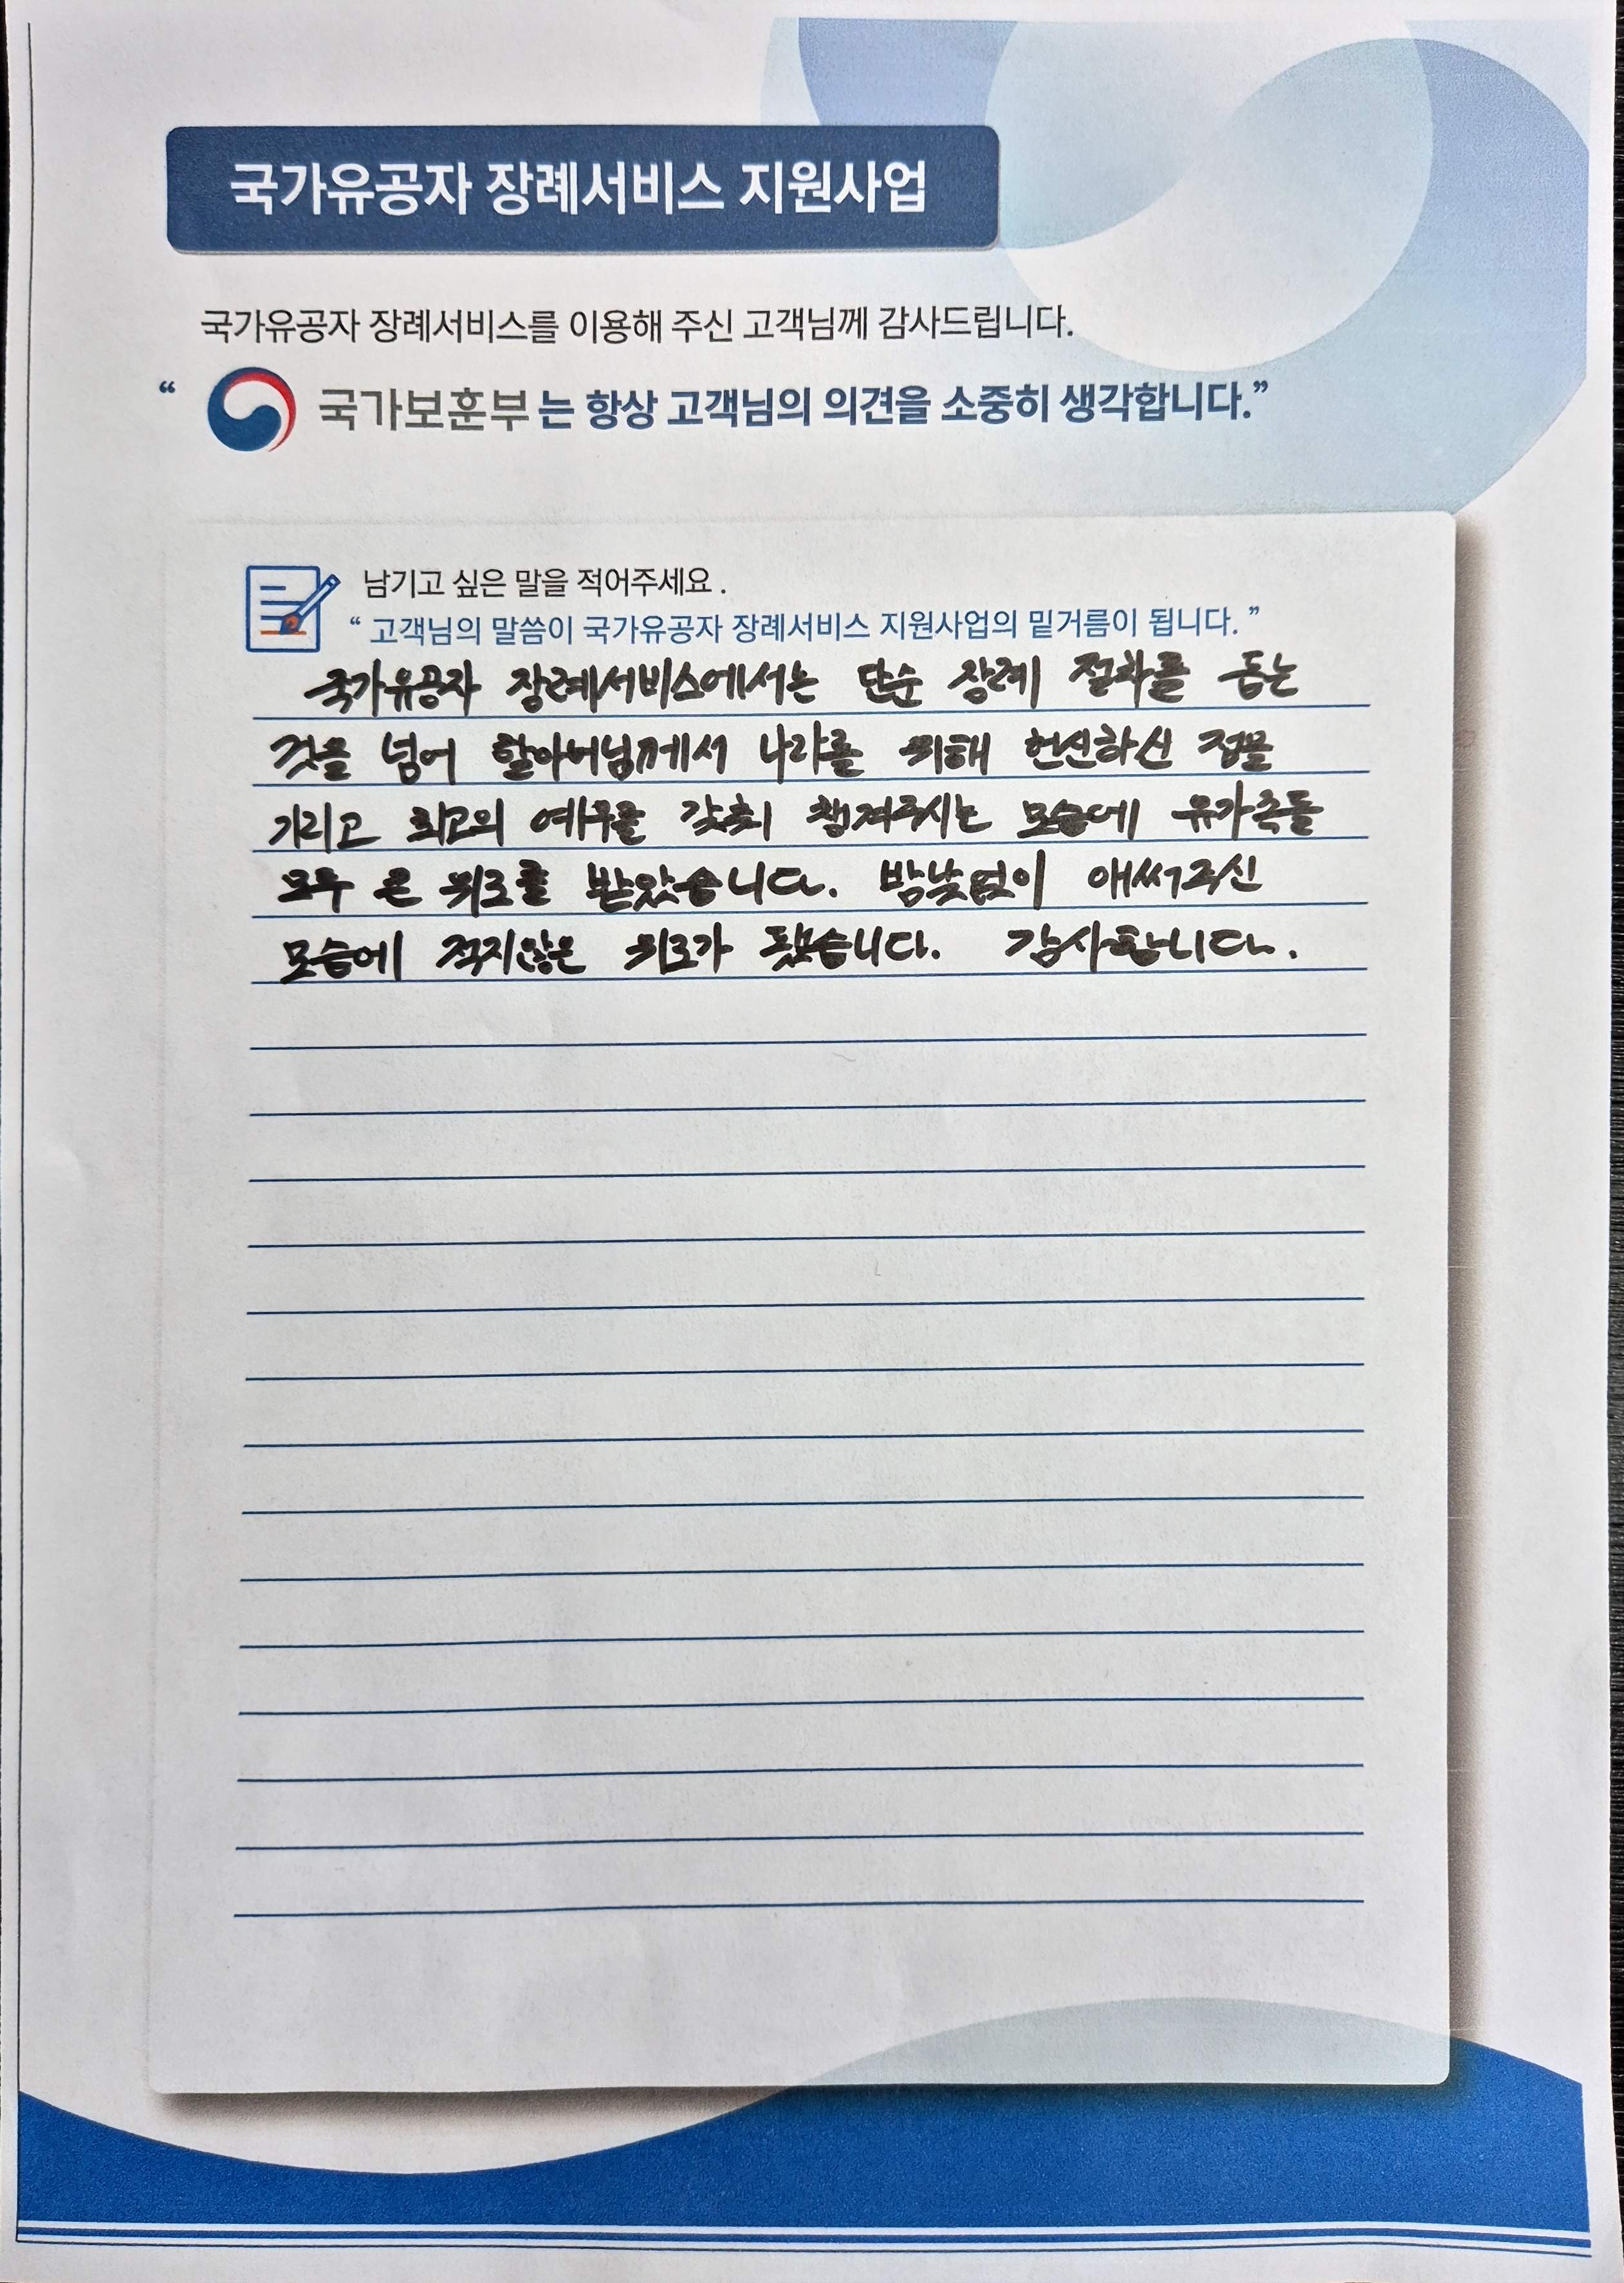 국가유공자 장례서비스 지원사업
국가유공자 장례서비스를 이용해 주신 고객님께 감사드립니다.
“ 국가보훈부는 항상 고객님의 의견을 소중히 생각합니다.”
남기고 싶은 말을 적어주세요 .
“ 고객님의 말씀이 국가유공자 장례서비스 지원사업의 밑거름이 됩니다. ”
국가유공자 장례서비스에서는 단순 장례 절차를 돕는
것을 넘어 할아버님께서 나라를 위해 헌신하신 점을
기리고 최고의 예우를 갖춰 챙겨주시는 모습에 유가족들
모두 큰 위로를 받았습니다. 밤낮없이 애써주신
모습에 적지않은 위로가 됐습니다. 감사합니다.